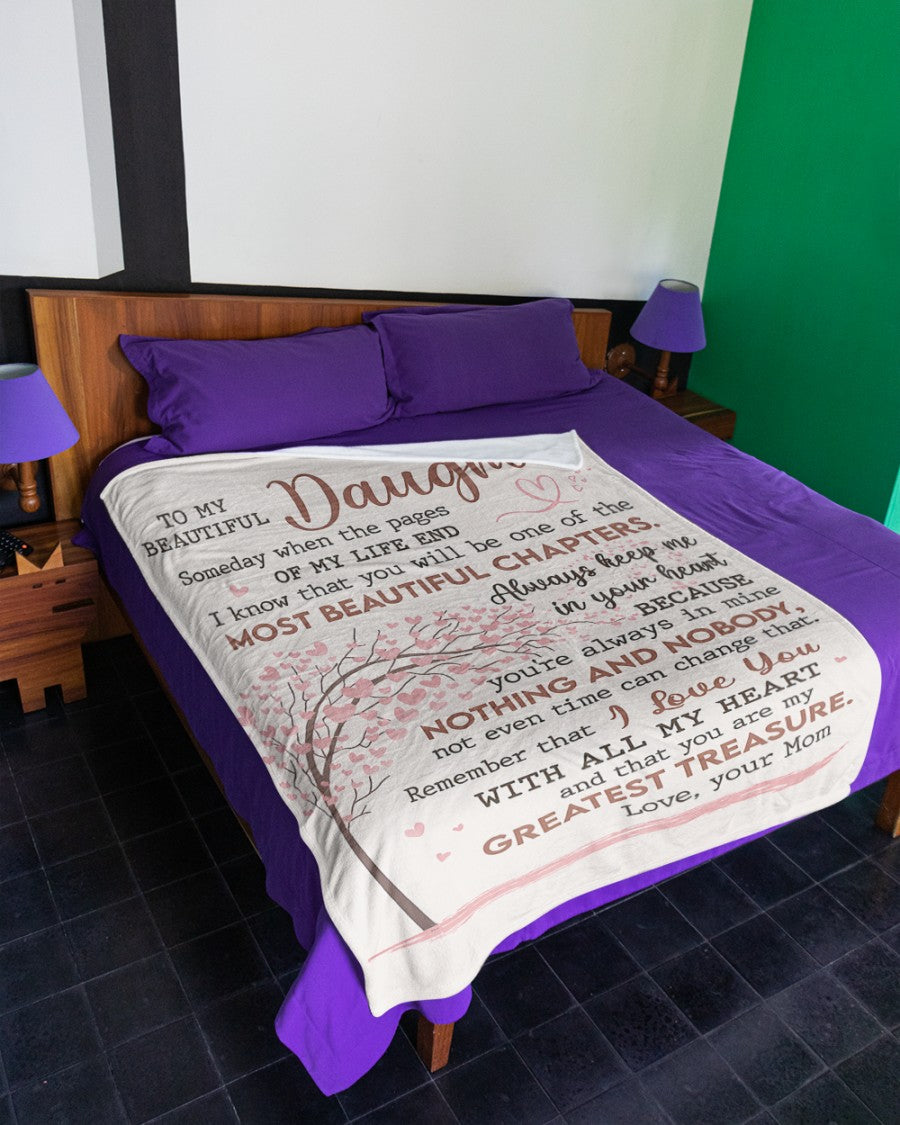 TO MY
BEAUTIFUL
Someday when the pages
OF MY LIFE END
I know that you will be one of the
MOST BEAUTIFUL CHAPTERS.
Always keep me
in your heart
BECAUSE
you're always in mine
NOTHING AND NOBODY,
not even time can change that.
Remember that I Love You
WITH ALL MY HEART
and that you are my
GREATEST TREASURE.
Love, your Mom